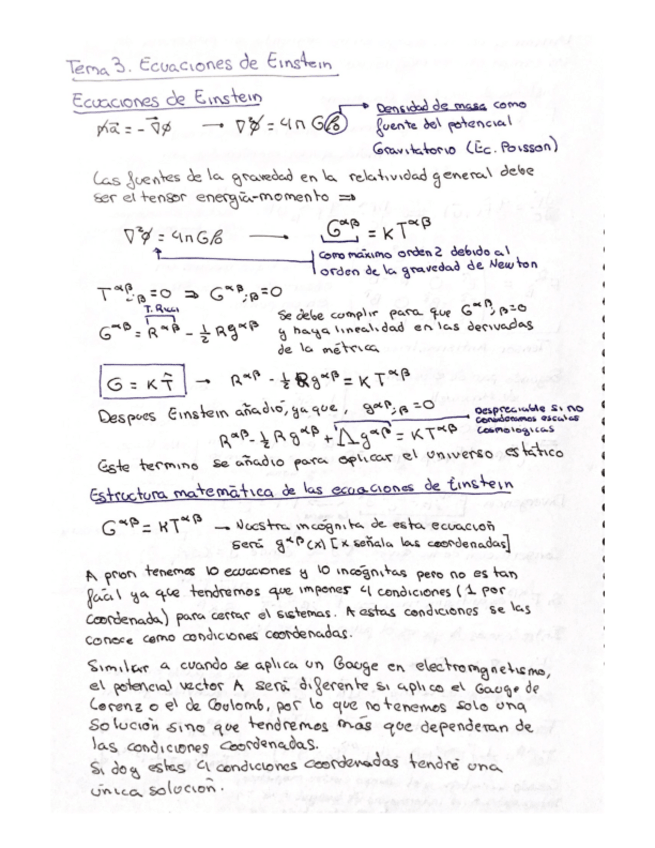 Tema 3. Ecuaciones de Einstein
Ecuaciones de Einstein
m̸a⃗ = -∇⃗ϕ → ∇²ϕ = 4πGρ → Densidad de masa como
fuente del potencial
Gravitatorio (Ec. Poisson)
Las fuentes de la gravedad en la relatividad general debe
ser el tensor energía-momento ⇒
∇²ϕ = 4πGρ → G^αβ = KT^αβ
como máximo orden 2 debido al
orden de la gravedad de Newton
T^αβ;β = 0 ⇒ G^αβ;β = 0
T. Ricci
G^αβ = R^αβ - 1/2 Rg^αβ
Se debe cumplir para que G^αβ;β = 0
y haya linealidad en las derivadas
de la métrica
G = KT̂ → R^αβ - 1/2 Rg^αβ = KT^αβ
Despues Einstein añadió, ya que, g^αβ;β = 0
despreciable si no
consideramos escalas
cosmologicas
R^αβ - 1/2 Rg^αβ + Λg^αβ = KT^αβ
Este termino se añadio para aplicar el universo estático
Estructura matemática de las ecuaciones de Einstein
G^αβ = KT^αβ → Nuestra incógnita de esta ecuación
será g^αβ(x) [x señala las coordenadas]
A priori tenemos 10 ecuaciones y 10 incógnitas pero no es tan
fácil ya que tendremos que impones 4 condiciones (1 por
coordenada) para cerrar el sistemas. A estas condiciones se las
conoce como condiciones coordenadas.
Similar a cuando se aplica un Gauge en electromgnetismo,
el potencial vector A será diferente si aplico el Gauge de
Lorenz o el de Coulomb, por lo que no tenemos solo una
solución sino que tendremos más que dependeran de
las condiciones coordenadas.
Si doy estas 4 condiciones coordenadas tendré una
única solución.